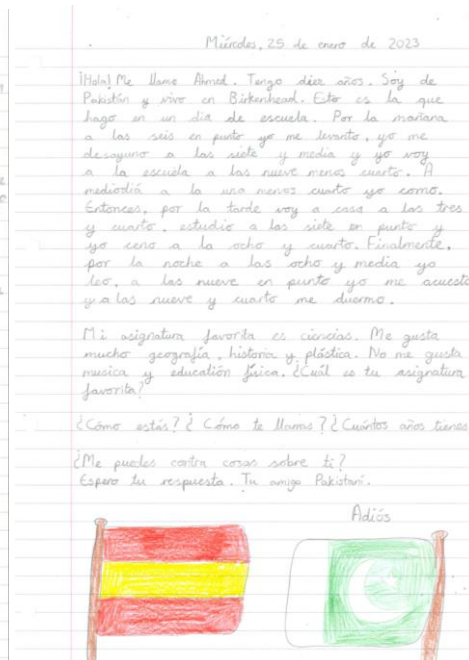 Miércoles, 25 de enero de 2023
¡Hola! Me llamo Ahmed. Tengo diez años. Soy de
Pakistán y vivo en Birkenhead. Esto es la que
hago en un día de escuela. Por la mañana
a las seis en punto yo me levanto, yo me
desayuno a las siete y media y yo voy
a la escuela a las nueve menos cuarto. A
mediodía a la una menos cuarto yo como.
Entonces, por la tarde voy a casa a las tres
y cuarto, estudio a las siete en punto y
yo ceno a la ocho y cuarto. Finalmente,
por la noche a las ocho y media yo
leo, a las nueve en punto yo me acuesto
y a las nueve y cuarto me duermo.
Mi asignatura favorita es ciencias. Me gusta
mucho geografía, historia y plástica. No me gusta
musica y education física. ¿Cuál es tu asignatura
favorita?
¿Cómo estás? ¿Cómo te llamas? ¿Cuántos años tienes
¿Me puedes contra cosas sobre ti?
Espero tu respuesta. Tu amigo Pakistaní.
Adiós